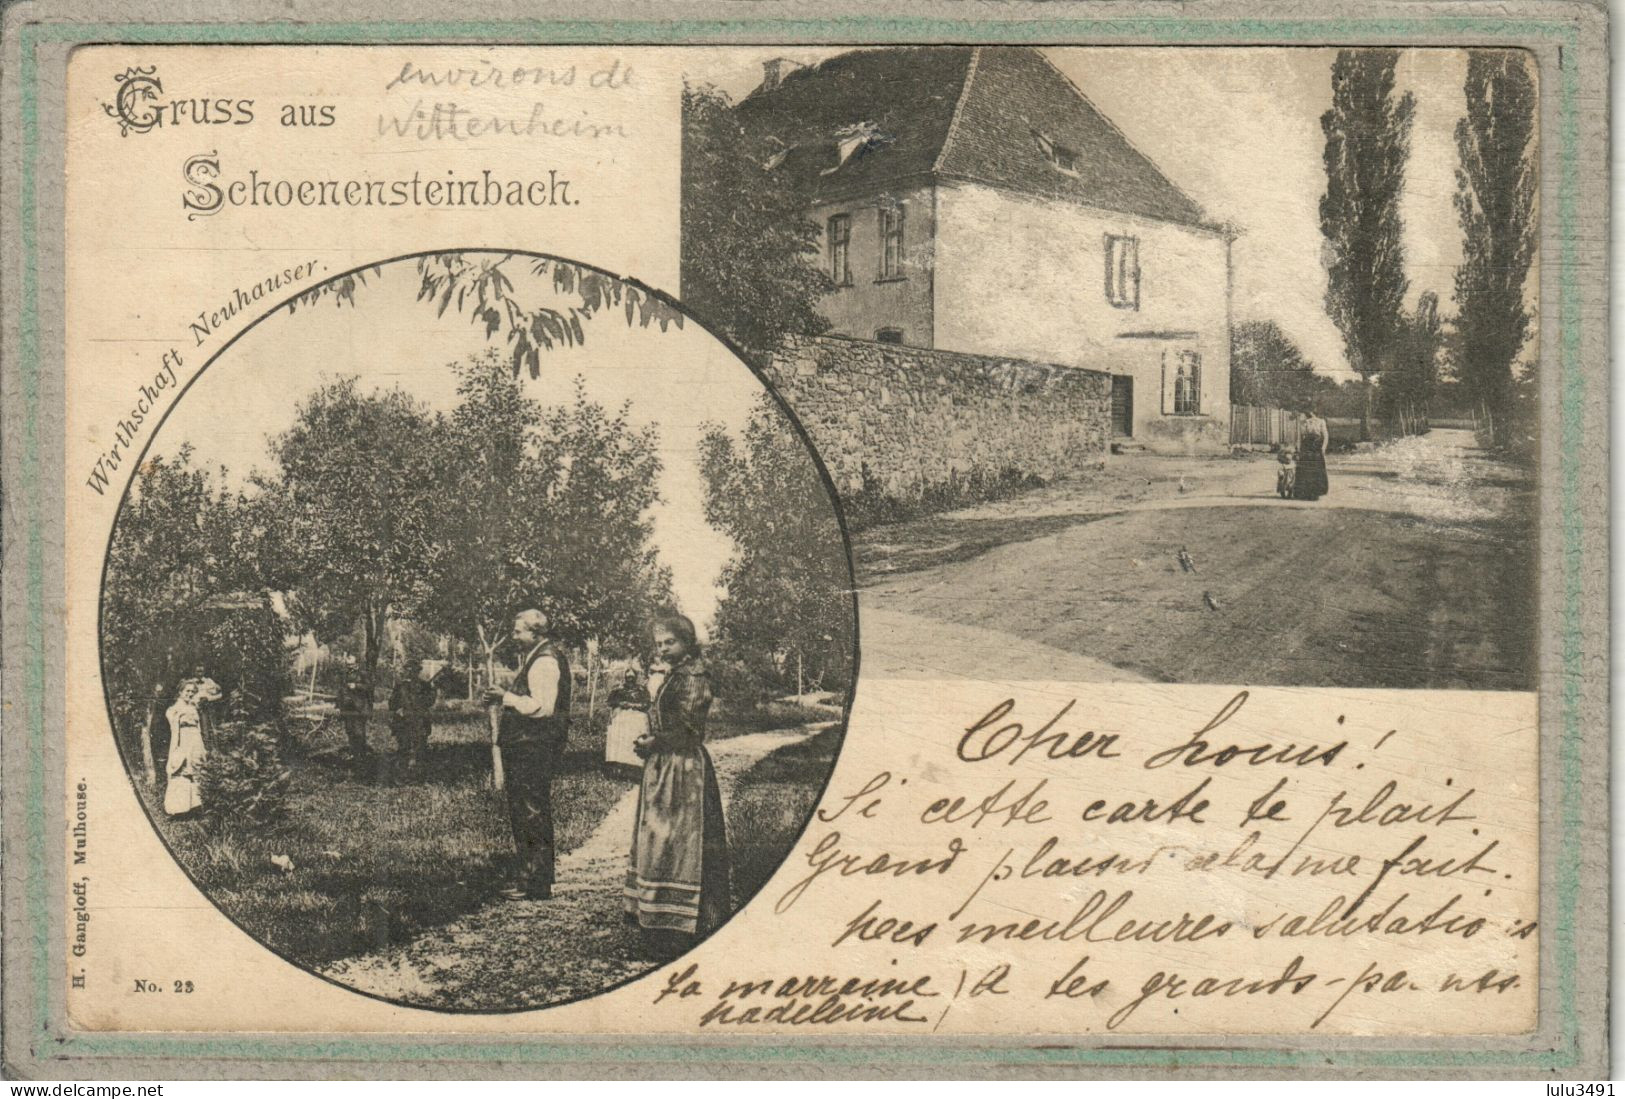 Gruss aus
Schoenensteinbach.
environs de
Wittenheim
Wirthschaft Neuhauser.
H. Gangloff, Mulhouse.
No. 23
Cher Louis!
Si cette carte te plait
Grand plaisir cela me fait.
Mes meilleures salutations
A tes grands-parents.
Ta marraine
Madeleine
delcampe.net
lulu3491